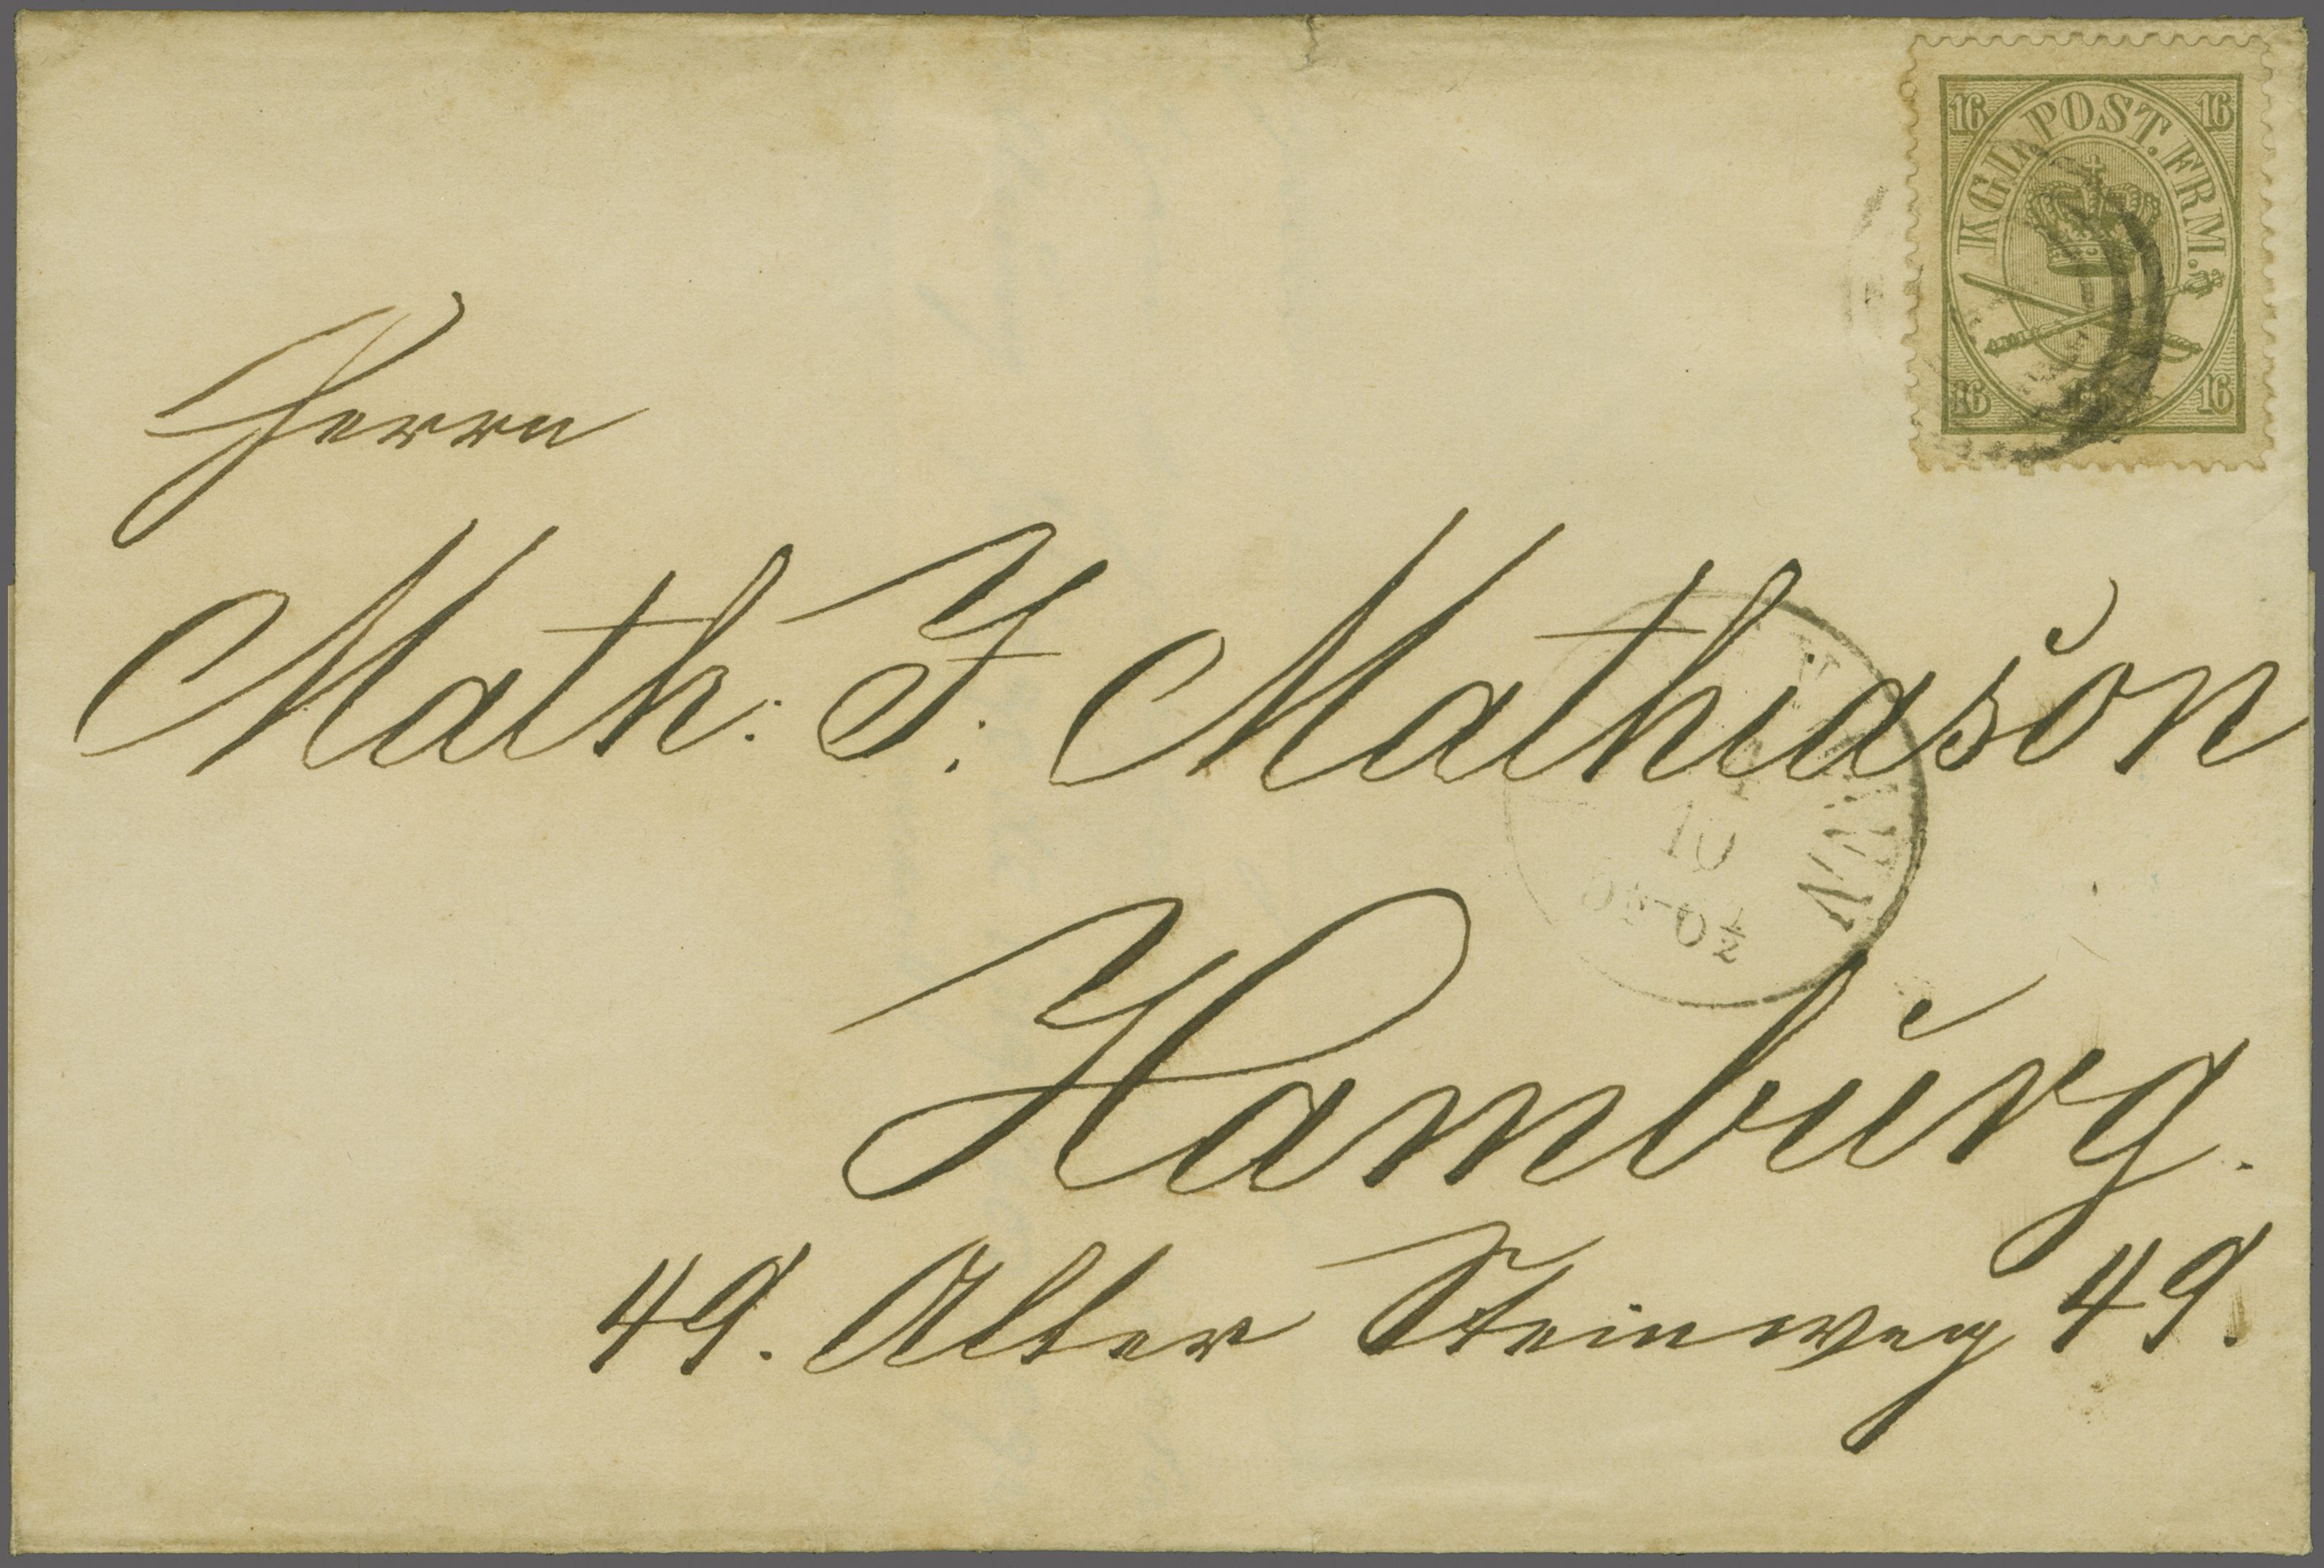 16 16
KGL. POST. FRM.
16 16
Herrn
Math: F: Mathiason
10
Hamburg.
49. Alter Steinweg 49.